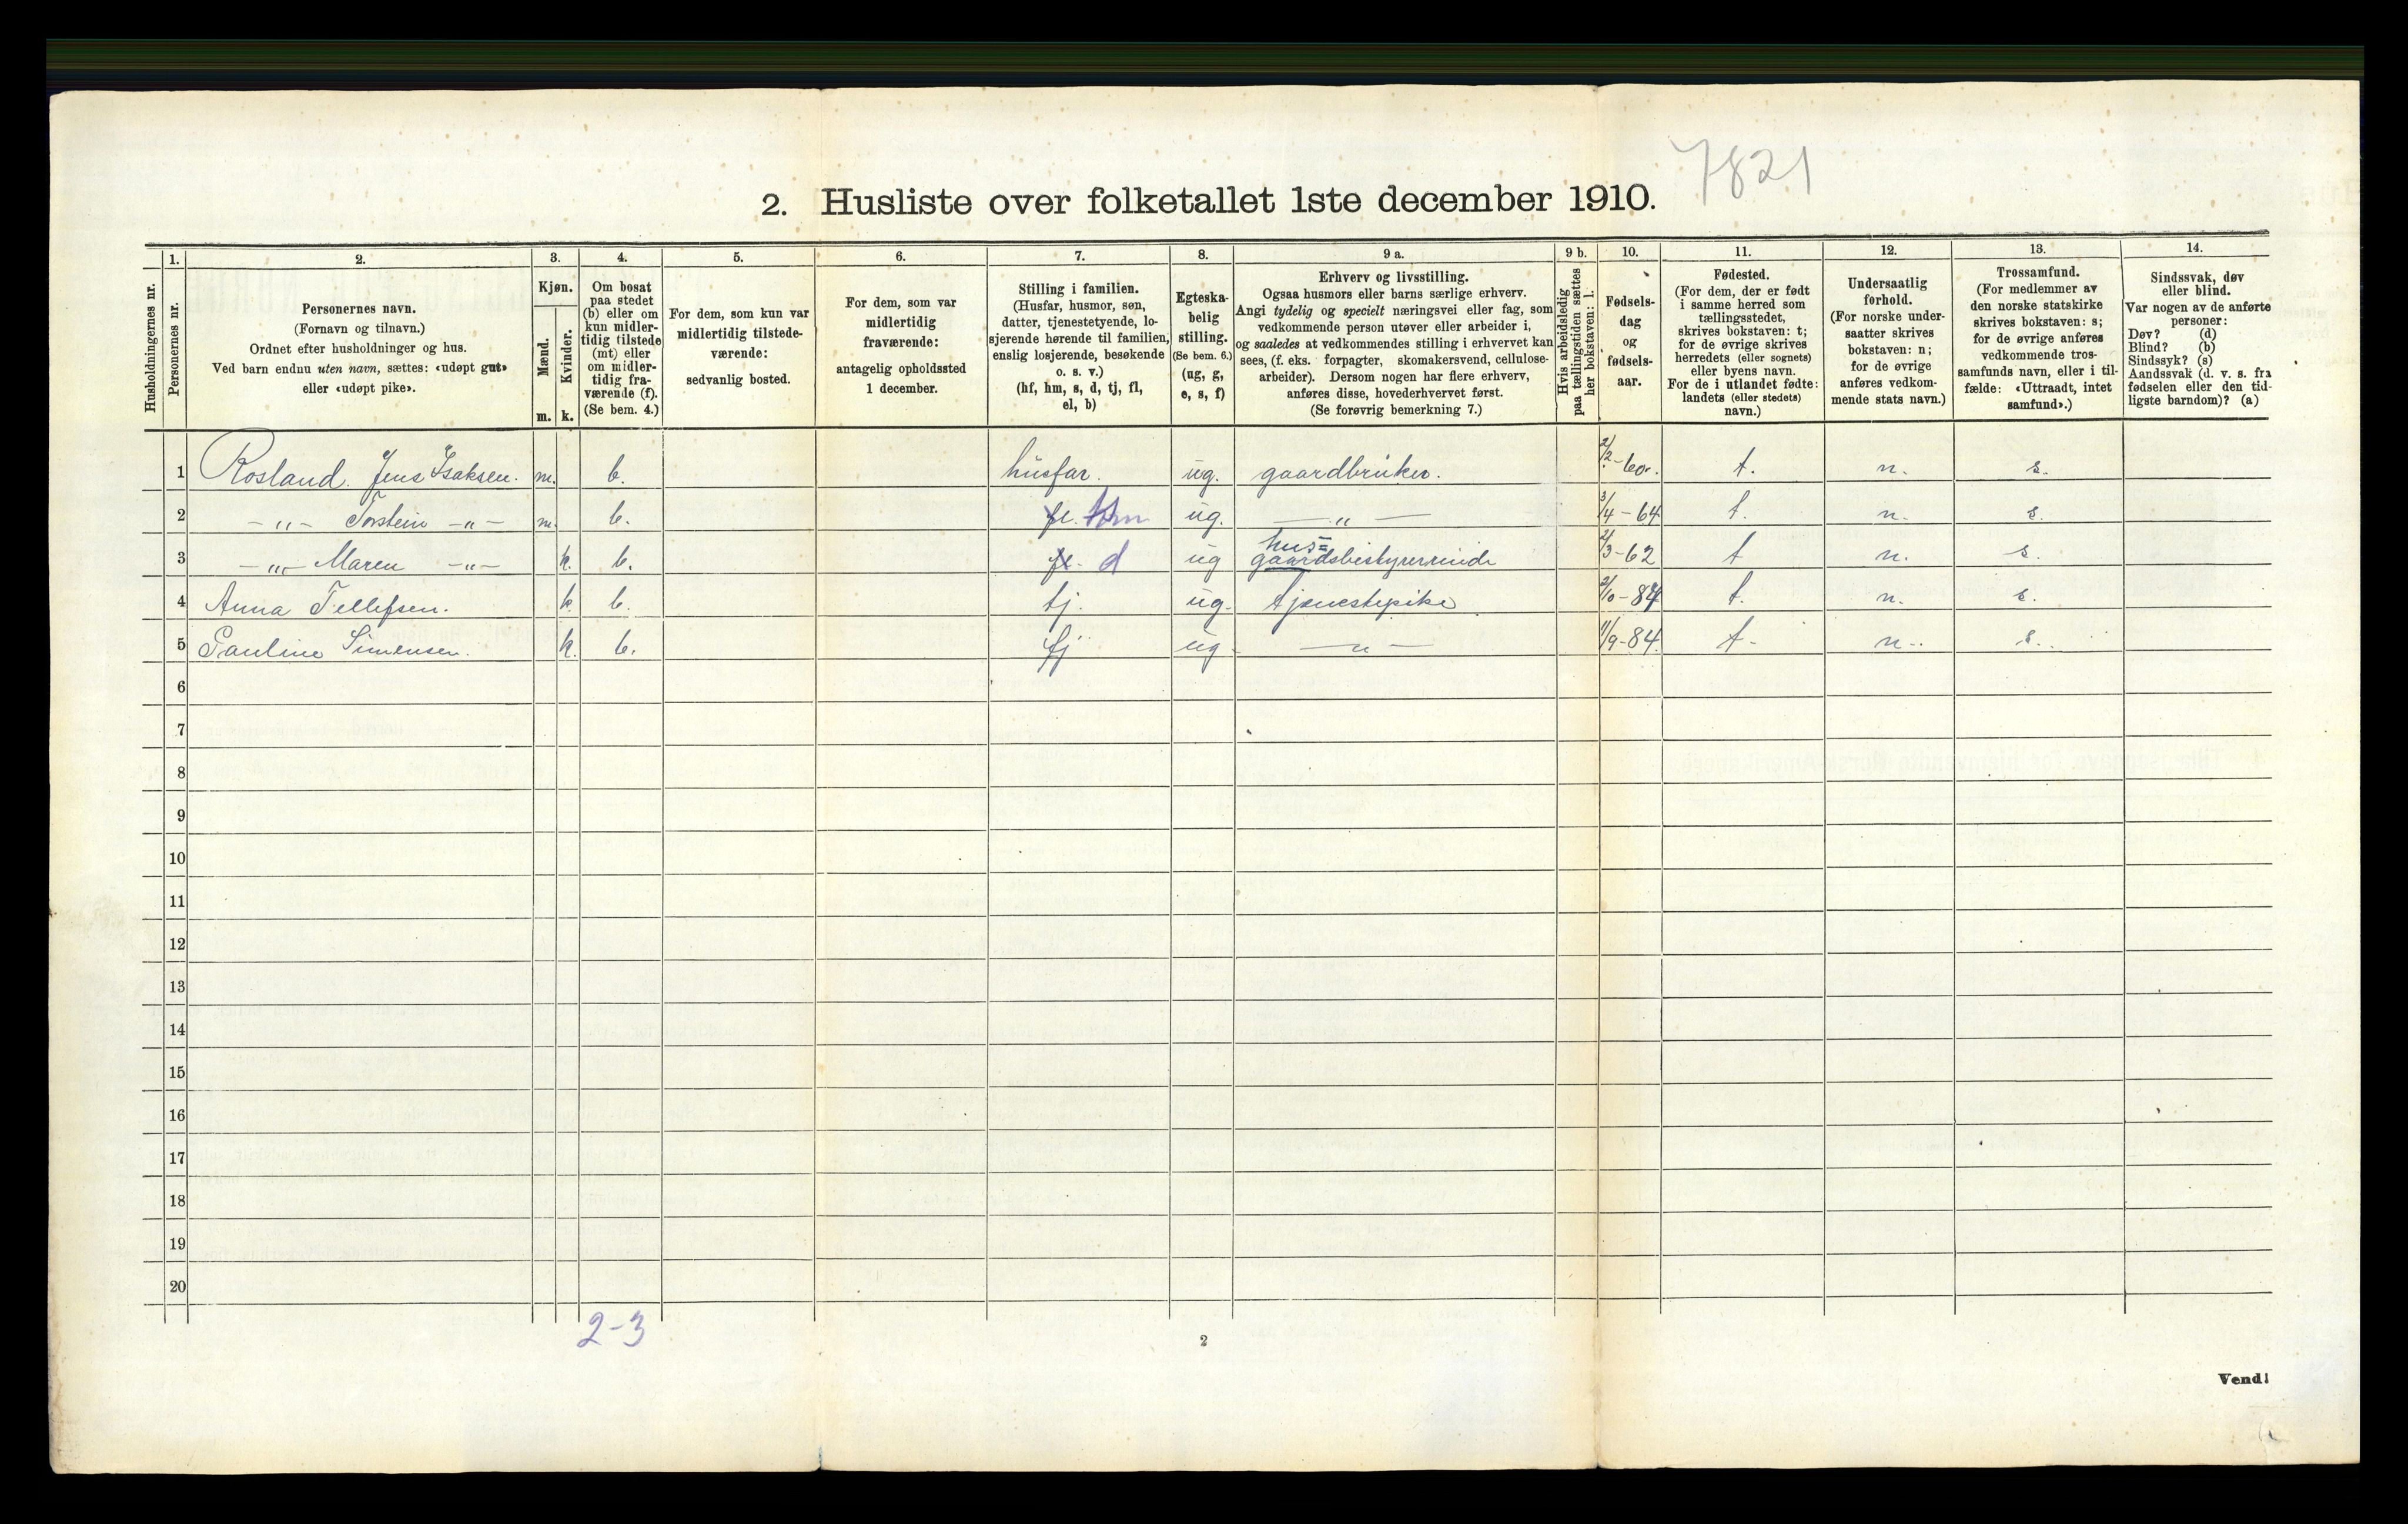 7821
2. Husliste over folketallet 1ste december 1910.
1. 2. 3. 4. 5. 6. 7. 8. 9 a. 9 b. 10. 11. 12. 13. 14.
Husholdningernes nr.
Personernes nr.
Personernes navn.
(Fornavn og tilnavn.)
Ordnet efter husholdninger og hus.
Ved barn endnu uten navn, sættes: «udøpt gut»
eller «udøpt pike».
Kjøn.
Mænd.
m.
Kvinder.
k.
Om bosat
paa stedet
(b) eller om
kun midler-
tidig tilstede
(mt) eller
om midler-
tidig fra-
værende (f).
(Se bem. 4.)
For dem, som kun var
midlertidig tilstede-
værende:
sedvanlig bosted.
For dem, som var
midlertidig
fraværende:
antagelig opholdssted
1 december.
Stilling i familien.
(Husfar, husmor, søn,
datter, tjenestetyende, lo-
sjerende hørende til familien,
enslig losjerende, besøkende
o. s. v.)
(hf, hm, s, d, tj, fl,
el, b)
Egteska-
belig
stilling.
(Se bem. 6.)
(ug, g,
e, s, f)
Erhverv og livsstilling.
Ogsaa husmors eller barns særlige erhverv.
Angi tydelig og specielt næringsvei eller fag, som
vedkommende person utøver eller arbeider i,
og saaledes at vedkommendes stilling i erhvervet kan
sees, (f. eks. forpagter, skomakersvend, cellulose-
arbeider). Dersom nogen har flere erhverv,
anføres disse, hovederhvervet først.
(Se forøvrig bemerkning 7.)
Hvis arbeidsledig
paa tællingstiden sættes
her bokstaven: l.
Fødsels-
dag
og
fødsels-
aar.
Fødested.
(For dem, der er født
i samme herred som
tællingsstedet,
skrives bokstaven: t;
for de øvrige skrives
herredets (eller sognets)
eller byens navn.
For de i utlandet fødte:
landets (eller stedets)
navn.)
Undersaatlig
forhold.
(For norske under-
saatter skrives
bokstaven: n;
for de øvrige
anføres vedkom-
mende stats navn.)
Trossamfund.
(For medlemmer av
den norske statskirke
skrives bokstaven: s;
for de øvrige anføres
vedkommende tros-
samfunds navn, eller i til-
fælde: «Uttraadt, intet
samfund».)
Sindssvak, døv
eller blind.
Var nogen av de anførte
personer:
Døv? (d)
Blind? (b)
Sindssyk? (s)
Aandssvak (d. v. s. fra
fødselen eller den tid-
ligste barndom)? (a)
1 Rosland. Jens Isaksen. m. b. husfar. ug. gaardbruker. 2/2-60. t. n. s.
2 -"- Torstein -"- m. b. fl. ug. -"- 3/4-64 t. n. s.
3 -"- Maren -"- k. b. fl. d ug hus=
gaardsbestyrerinde 2/3-62 t n. s.
4 Anna Tellefsen. k. b. tj. ug. tjenestepike 2/10-84 t. n. s.
5 Pauline Simensen. k. b. tj ug. -"- 11/9-84. t. n. s.
6
7
8
9
10
11
12
13
14
15
16
17
18
19
20
2-3
2
Vend!